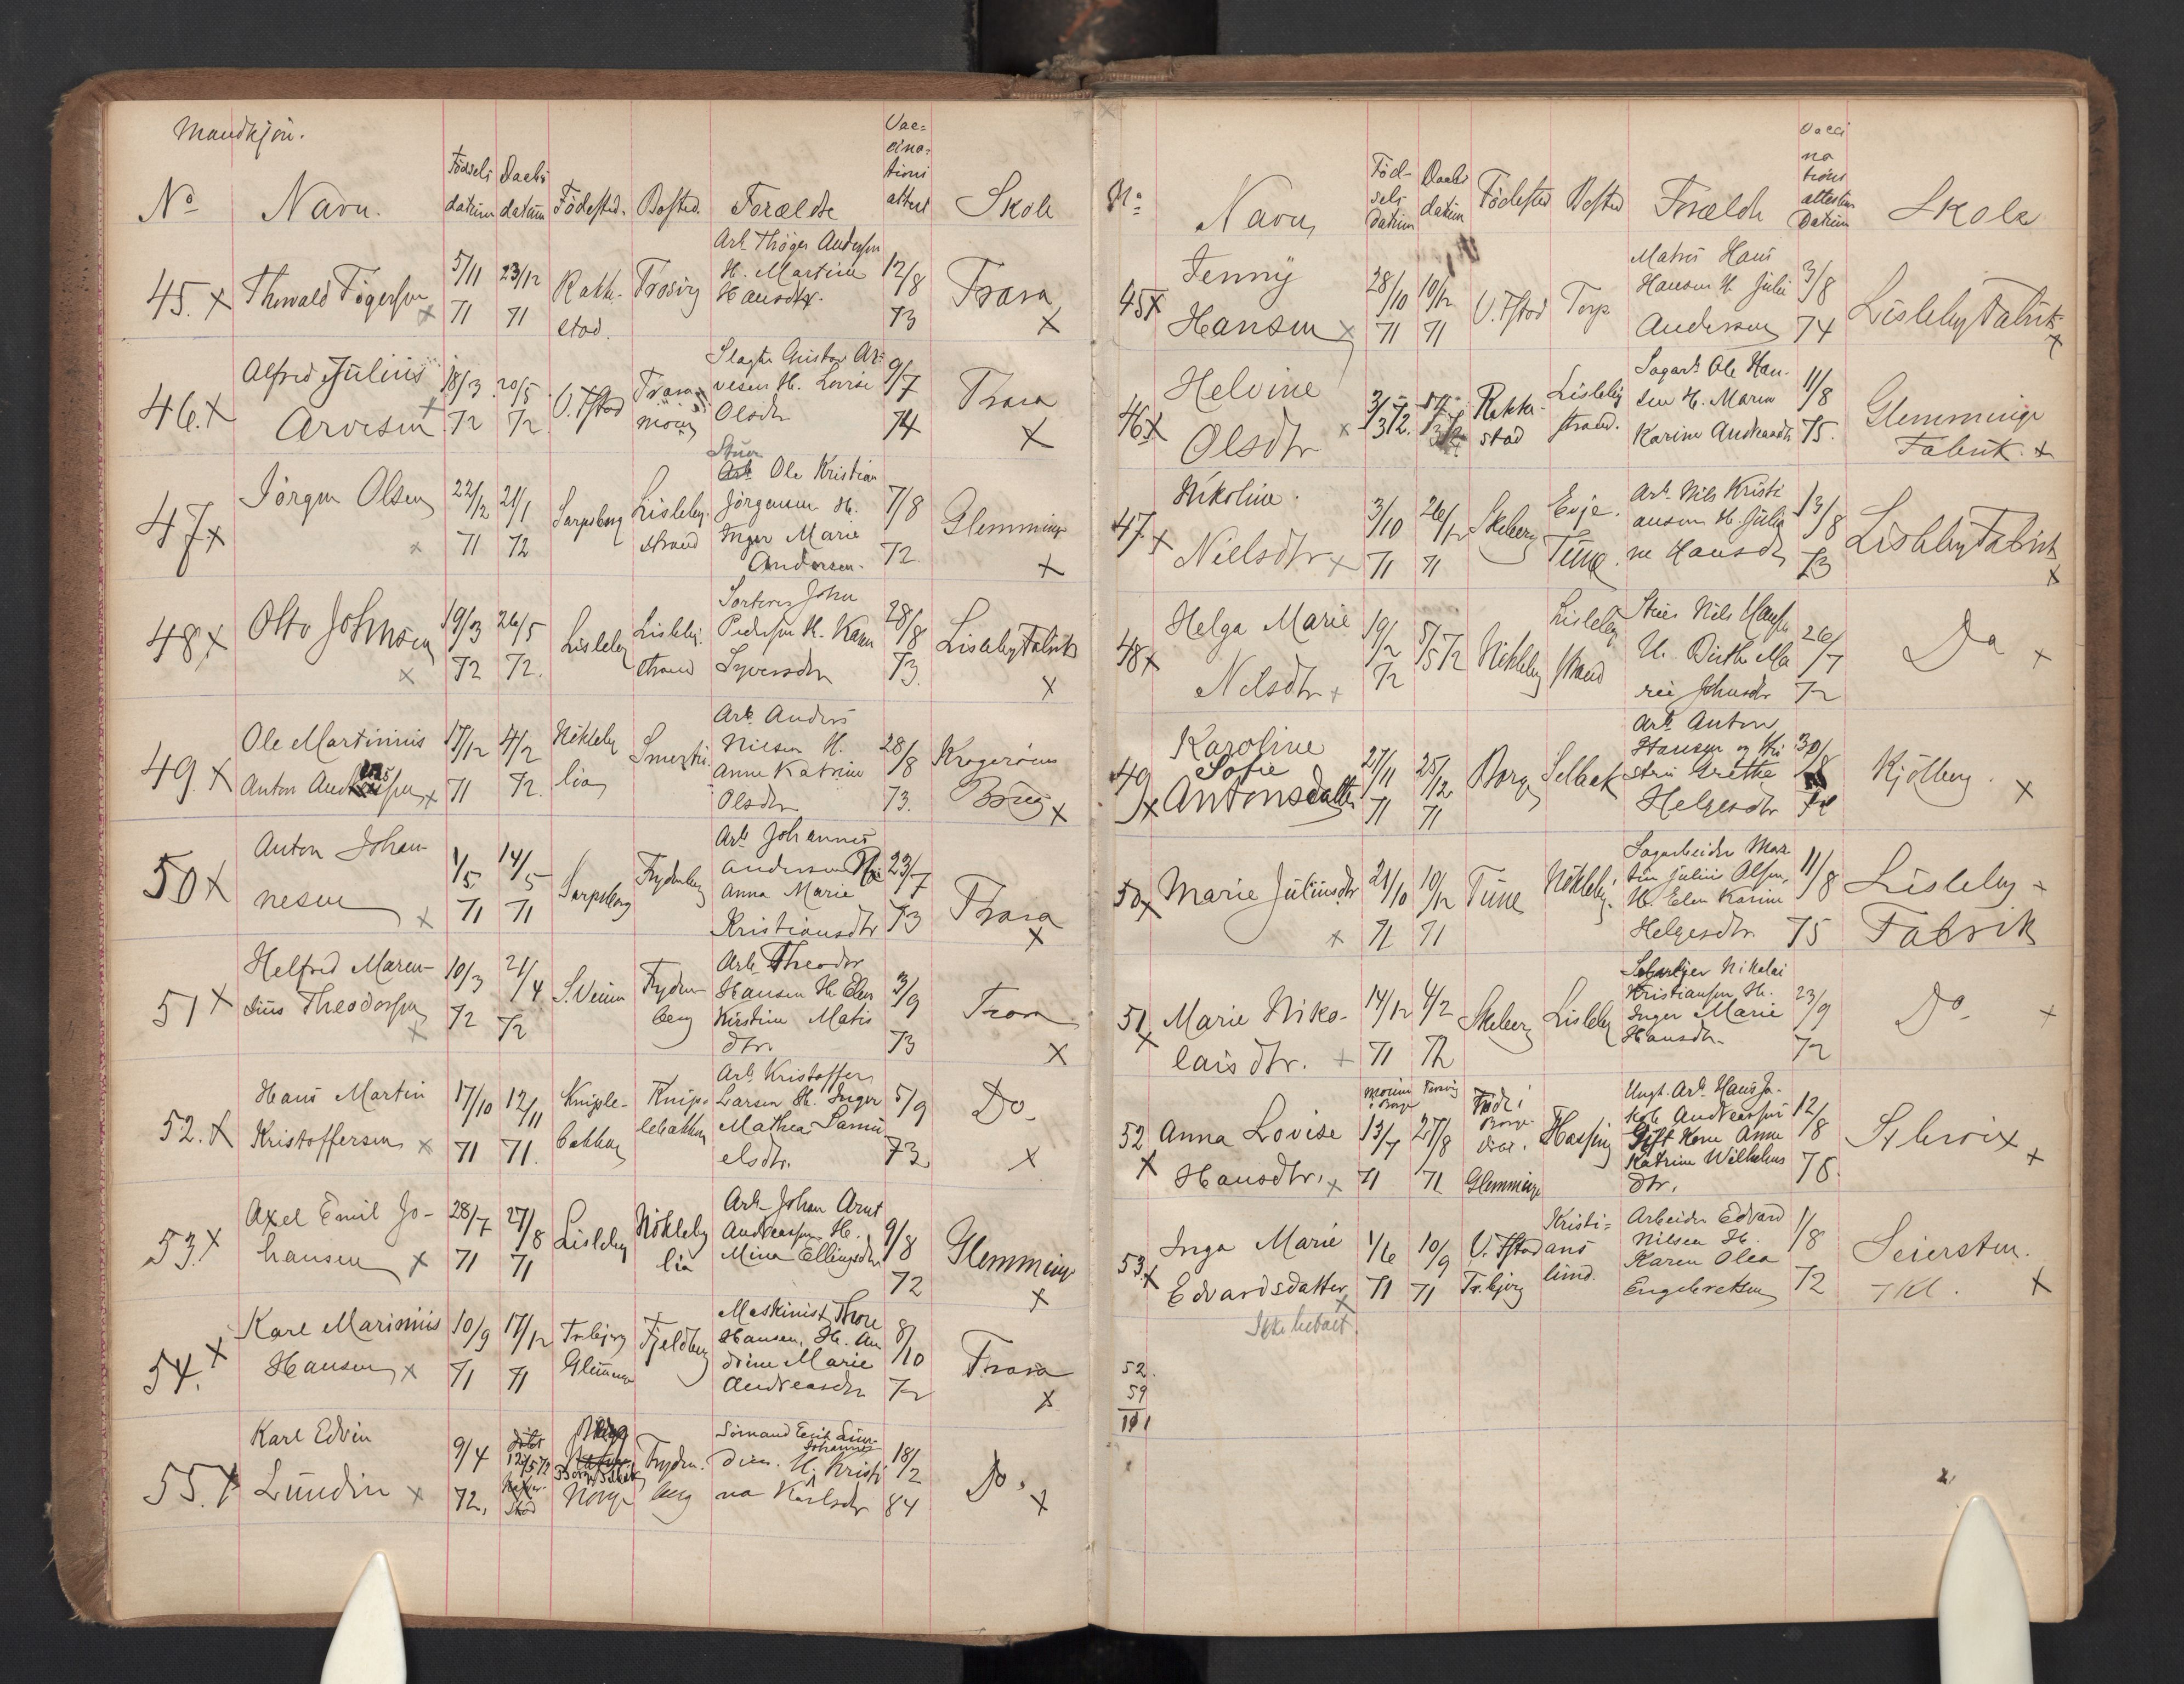 Mandkjön.
No Navn. Födsels datum Daabs datum Födested. Bosted. Forældre Vaccinations attest Skole
45. x Thorvald Tögersen x 5/11 71 23/12 71 Rakkestad. Trosvig Arb. Thöger Andersen H. Martine Hansdtr. 12/8 73 Trara x
46. x Alfred Julius Arvesen x 18/3 72 20/5 72 V. Fstad Slagter Gustav Arvesen H. Lovise Olsdtr 9/7 74 Trara x
47 x Jörgen Olsen x 22/12 71 21/1 72 Sarpsborg Lislebystrand Stuer Arb. Ole Kristian Jörgensen H. Inger Marie Andersen. 7/8 72 Glemminge x
48 x Otto Johnsen x 19/3 72 26/5 72. Lisleby Lislebystrand John Pedersen H. Karen Syversdtr 28/8 73. Lisleby Fabrik x
49. x Ole Martinius Anton x 17/12 71 4/2 72. Nökleby lia Arb. Anders Nilsen H. Anne Katrine Olsdtr 28/8 73. Krageröens Brug x
50 x Anton Johannesen x 1/5 71 14/5 71 Sarpsborg Frydenberg Arb. Johannes Andersen Anna Marie Kristiansdtr 23/7 73 Trara x
51 x Helfred Marensius Theodorsen x 10/3 72 21/4 72 Frydenberg Arb. Theodor Hansen H. Elen Kirstine Matisdtr. 3/9 73 Trara x
52. x Hans Martin Kristoffersen x 17/10 71 12/11 71. Kniplebakken Kniplebakken Arb. Kristoffer Larsen H. Inger Mathea Samuelsdtr. 5/9 73 Do. x
53. x Axel Emil Johansen x 28/7 71 27/8 71 Lisleby Nökleby lia Arb. Johan Arnt Andreassen H. Mina Ellingsdtr 9/8 72 Glemminge x
54. x Karl Marinius Hansen x 10/9 71 17/12 71 Trbjerg Glemminge Fjeldberg Maskinist Thore Hansen, H. Andrine Marie Andreasdtr 8/10 72 Trara x
55. x Karl Edvin Lundin x 9/4 72, döbt 12/5 72 Norge Frydenberg Sömand Johannes Lundin. H. Kristina Karlsdtr 18/2 84 Do. x
No Navn Födsels Datum Daabs datum Födested Bosted Forældre Vaccinations attestens Datum Skole
45 x Jenny Hansen x 28/10 71 10/12 71 V. Fstad Torp Matros Hans Hansen H. Julie Andersen 3/8 74 Lisleby Fabrik x
46 x Helvine Olsdtr x 3/3 72. Rakkestad Lislebystrand. Sagarb. Ole Hansen H. Maren Karine Andreasdtr 11/8 75. Glemminge Fabrik. x
47. x Nikoline Nielsdtr x 3/10 71 26/12 71 Skeberg Evje. Tune. Arb. Nils Kristiansen H. Juliane Hansdtr 13/8 73 Lisleby Fabrik x
48 x Helga Marie Nelsdtr x 19/2 72 5/5 72 Nökleby Lislebystrand Stuer Nils Hansen H. Birthe Marie Johnsdtr 26/7 72 Do x
49 x Karoline Sofie Antonsdatter 27/11 71 25/12 71 Borge Selbak Arb. Anton Hansen og Hustru Grethe Helgesdtr 30/8 Kjölberg. x
50 x Marie Juliusdtr x 21/10 71 10/12 71 Tune Nökleby. Sagarbeider Martin Julius Olsen, H. Elen Karine Helgesdtr. 11/8 75 Lisleby Fabrik x
51 x Marie Nikolaisdtr. x 14/12 71 4/2 72 Skeberg Lisleby Nikolai Kristiansen H. Inger Marie Hansdtr. 23/9 72 Do. x
52 x Anna Lovise Hansdtr, x 13/7 71 27/8 71 Född i Borge Glemminge Ungk. Arb. Hans Jakob Andreassen Gift Kone Anne Katrine Wilhelmsdtr. 12/8 78. St. Croix x
53. x Inga Marie Edvardsdatter x 1/6 71 10/9 71 V. Fstad Tr.bjerg Kristianslund. Arbeider Edvard Nilsen H. Karen Olea Engebretsen 1/8 72 Seiersten. 7 Kl. x
Ikke betalt.
52.
59
111